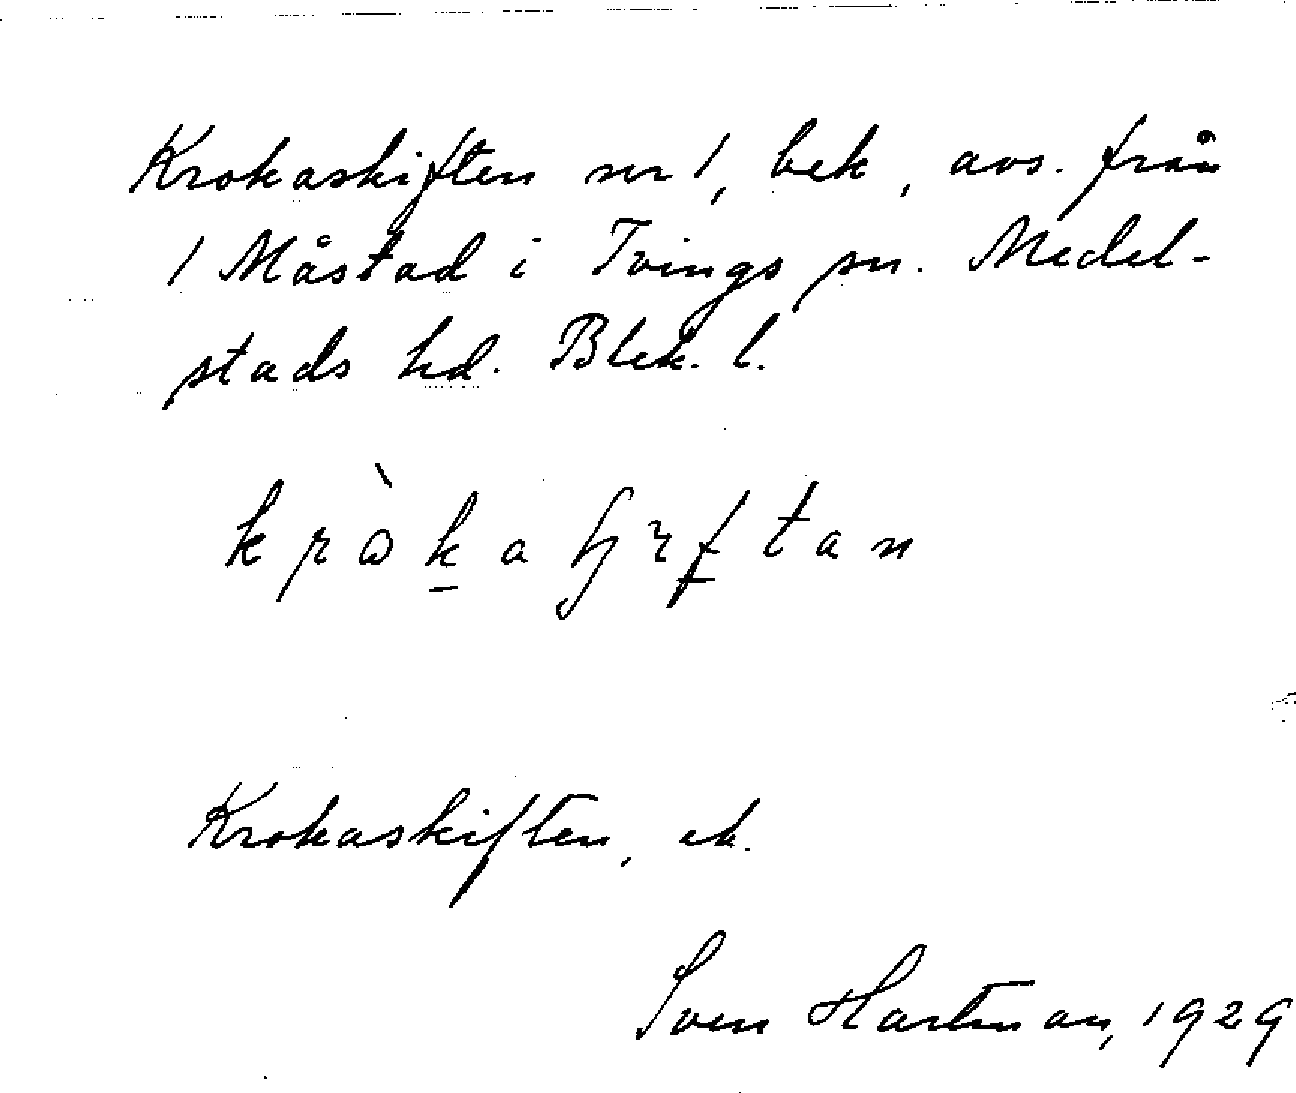 Krokaskiften nr 1, bek, avs. från
1 Måstad i Tvings sn. Medel-
stads hd. Blek. l.
Krokaskiften, ek.
Sven Hartman, 1929